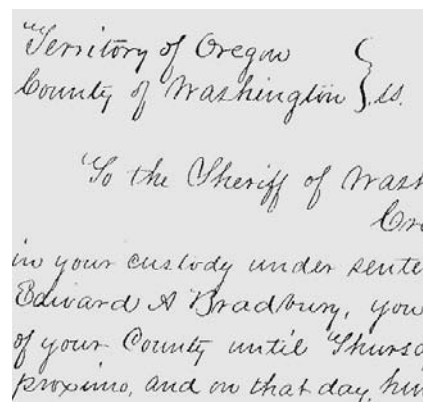 "Territory of Oregon
County of Washington } ss.
"To the Sheriff of Wash
Gre
in your custody under sente
Edward A Bradbury, you
of your County until Thursd
proximo, and on that day, hi